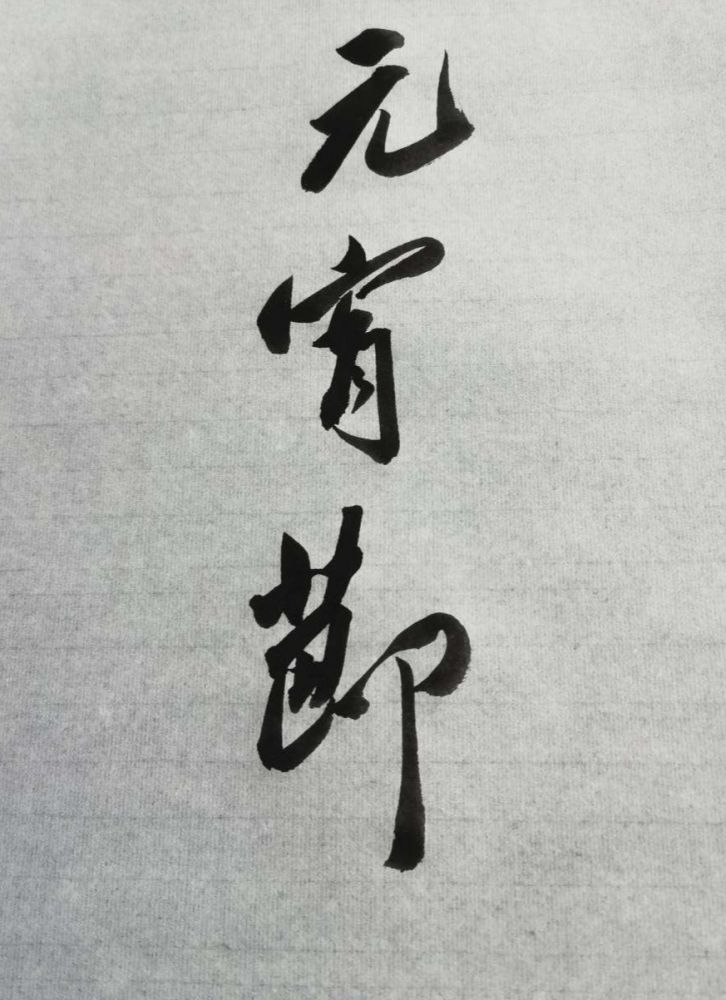 元宵節